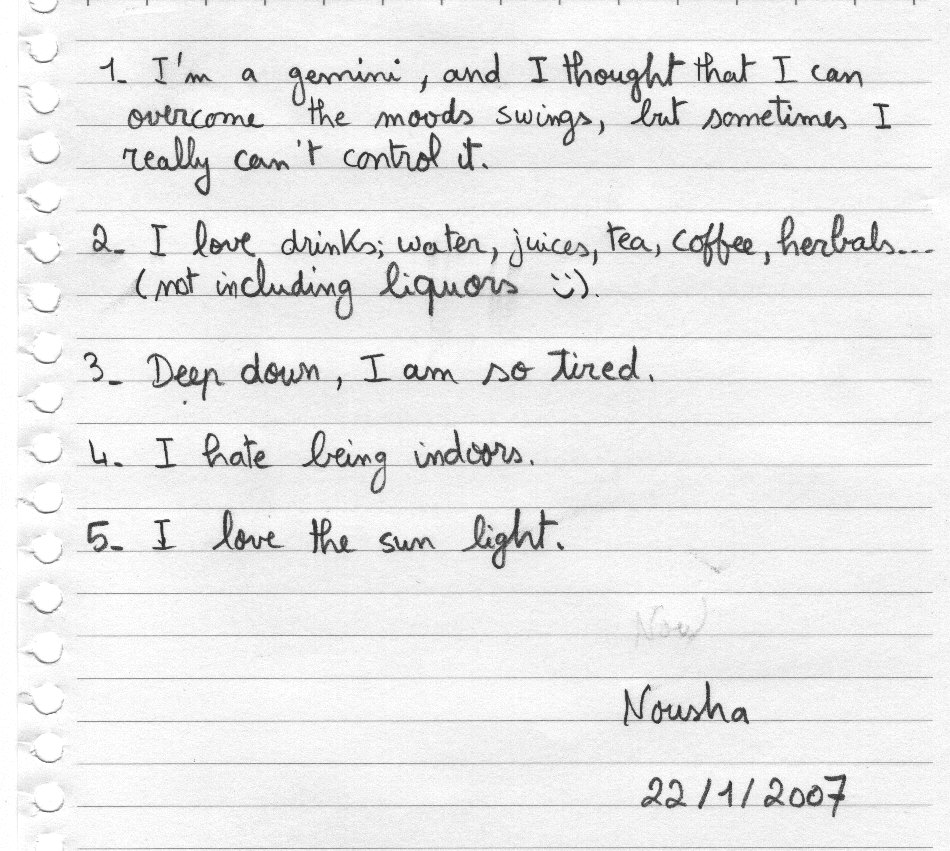 1- I'm a gemini, and I thought that I can
overcome the moods swings, but sometimes I
really can't control it.
2- I love drinks; water, juices, tea, coffee, herbals...
(not including liquors :)).
3- Deep down, I am so tired.
4- I hate being indoors.
5- I love the sun light.
Nousha
22/1/2007